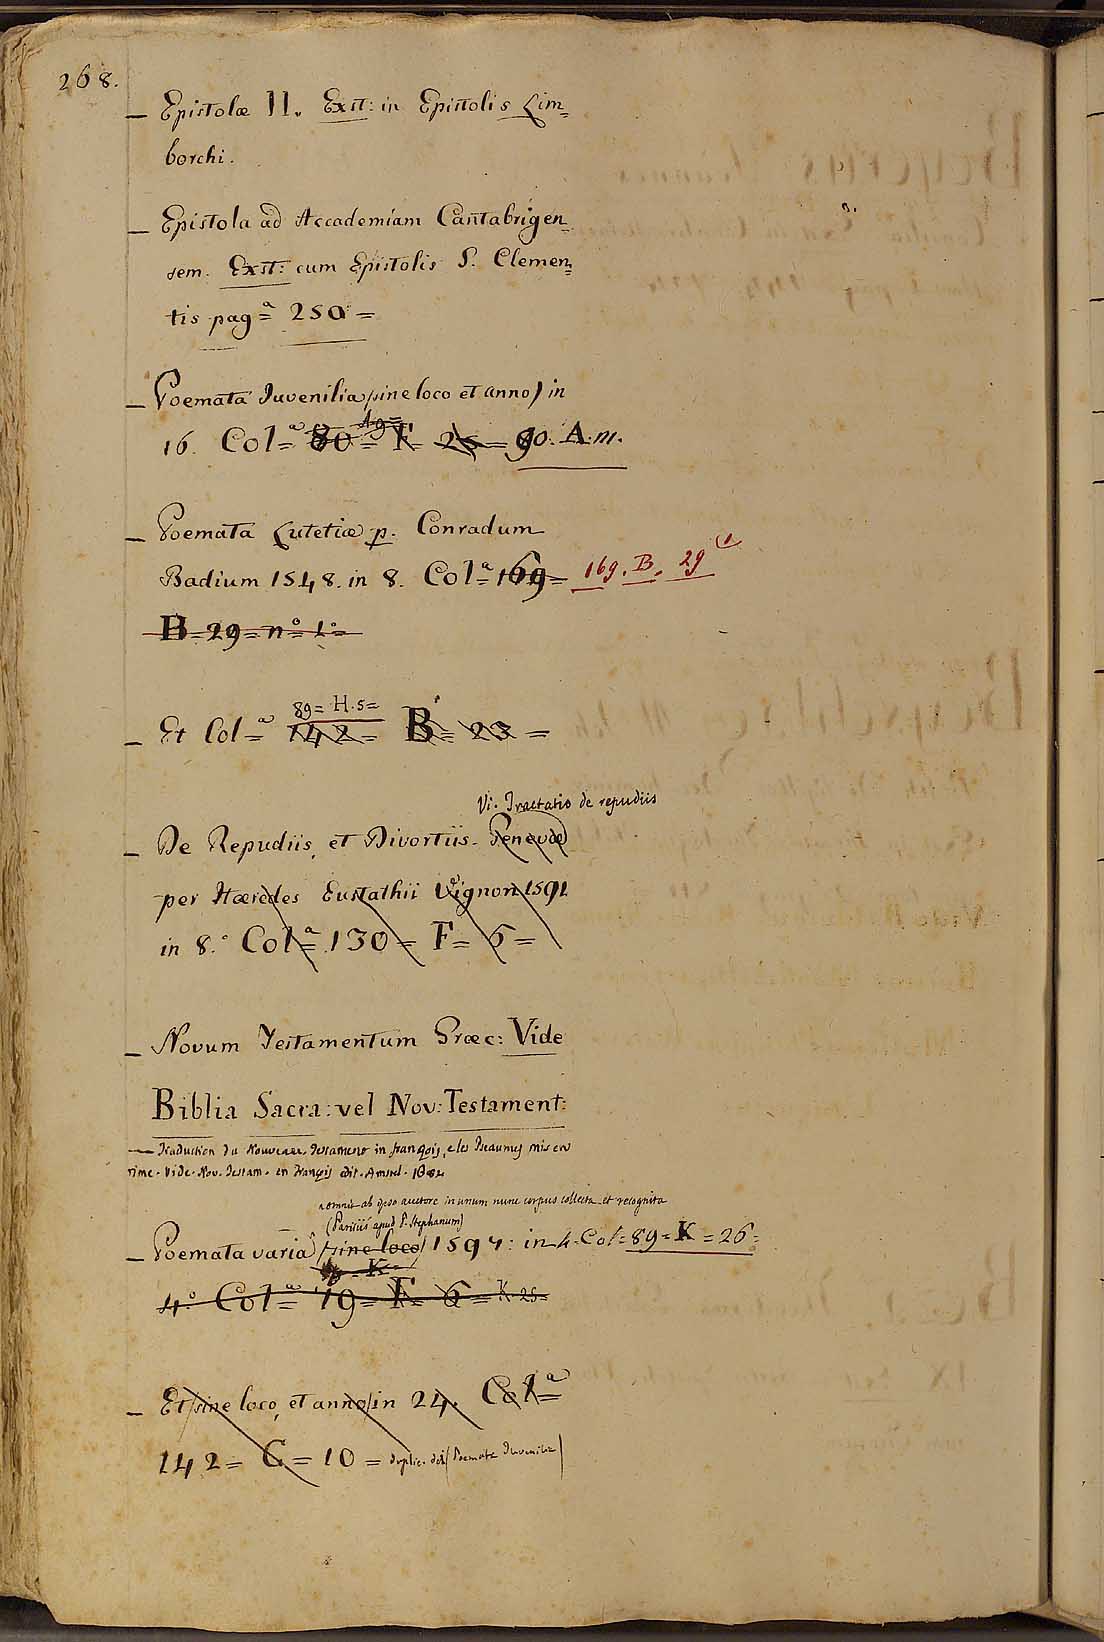 268.
— Epistolæ II. Exst: in Epistolis Lim=
borchi.
— Epistola ad Accademiam Cantabrigen=
sem. Exst: cum Epistolis S. Clemen=
tis pag.ª 250 =
— Poemata Iuvenilia (sine loco et anno) in
16. Col=ª 80 = F = 25 = 90. A. m.
— Poemata Lutetiæ p. Conradum
Badium 1548. in 8. Col=ª 169 = 169. B. 29 (1
B = 29 = nº 1º =
89 = H. 5 =
— Et Col=ª 142 = B = 23 =
Vi. Tractatio de repudiis
— De Repudiis, et Divortiis. Genevæ
per Hæredes Eustathii Vignon 1591
in 8.º Col=ª 130 = F = 5 =
— Novum Testamentum Græc: Vide
Biblia Sacra: vel Nov: Testament:
— Traduction du Nouveau Testament in françois, e les Pseaumes mis en
rime. Vide. Nov. Testam. en françois edit. Amstel.
omnia ab ipso auctore in unum nunc corpus collecta et recognita
(Parisiis apud P. Stephanum)
— Poemata varia (sine loco) 1597: in 4. Col = 89 = K = 26 =
4.º Col=ª 19 = F = 6 = K. 25 =
— Et (sine loco, et anno) in 24. Col=ª
142 = C = 10 = duplic. del (Poemata Iuvenilia)